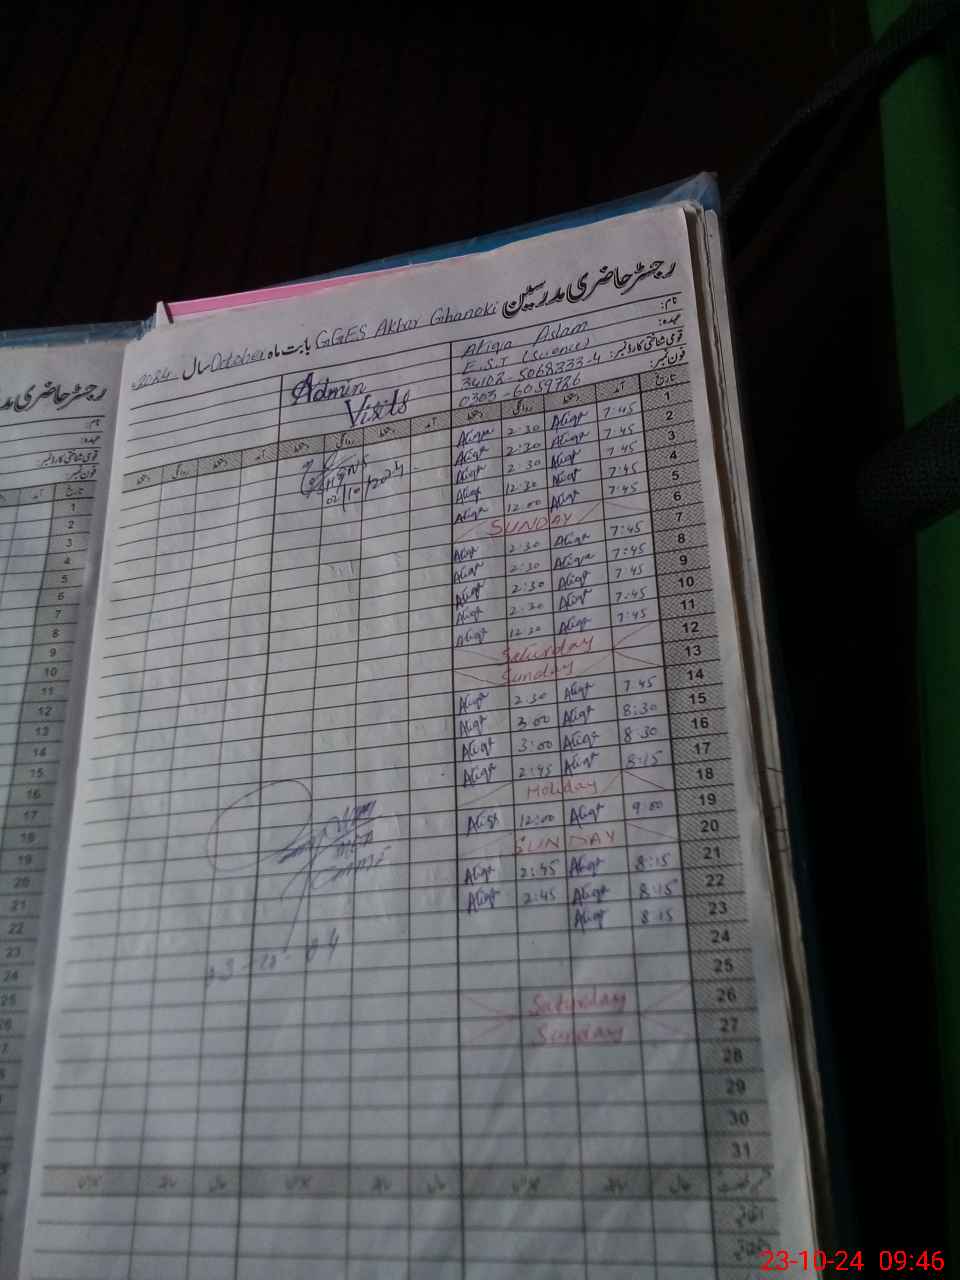 رجسٹر حاضری مدرسین GGES Akbar Ghanoki بابت ماہ October سال 2024
نام: Atiqa Aslam
عہدہ: E.S.T (Science)
قومی شناختی کارڈ نمبر: 34102-5068333-4
فون نمبر: 0303-6059786
Admin
Visits
تاریخ
1 7:45 Atiqa 2:30 Atiqa
2 7:45 Atiqa 2:30 Atiqa
3 7:45 Atiqa 2:30 Atiqa
4 7:45 Atiqa 12:30 Atiqa
5 7:45 Atiqa 12:00 Atiqa
6 SUNDAY
7 7:45 Atiqa 2:30 Atiqa
8 7:45 Atiqa 2:30 Atiqa
9 7:45 Atiqa 2:30 Atiqa
10 7:45 Atiqa 2:30 Atiqa
11 7:45 Atiqa 12:30 Atiqa
12 Saturday
13 Sunday
14 7:45 Atiqa 2:30 Atiqa
15 8:30 Atiqa 3:00 Atiqa
16 8:30 Atiqa 3:00 Atiqa
17 8:15 Atiqa 2:45 Atiqa
18 Holiday
19 9:00 Atiqa 12:00 Atiqa
20 SUNDAY
21 8:15 Atiqa 2:45 Atiqa
22 8:15 Atiqa 2:45 Atiqa
23 8:15 Atiqa
24
25
26 Saturday
27 Sunday
28
29
30
31
02/10/2024
رجسٹر حاضری مد
نام:
عہدہ:
قومی شناختی کارڈ نمبر:
فون نمبر:
تاریخ
1
2
3
4
5
6
7
8
9
10
11
12
13
14
15
16
17
18
19
20
21
22
23
24
25
26
23-10-24 09:46